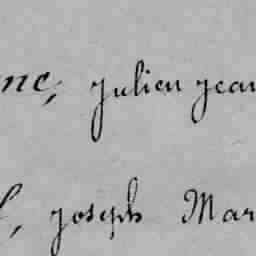 nc, Julien jean
l, joseph Mar